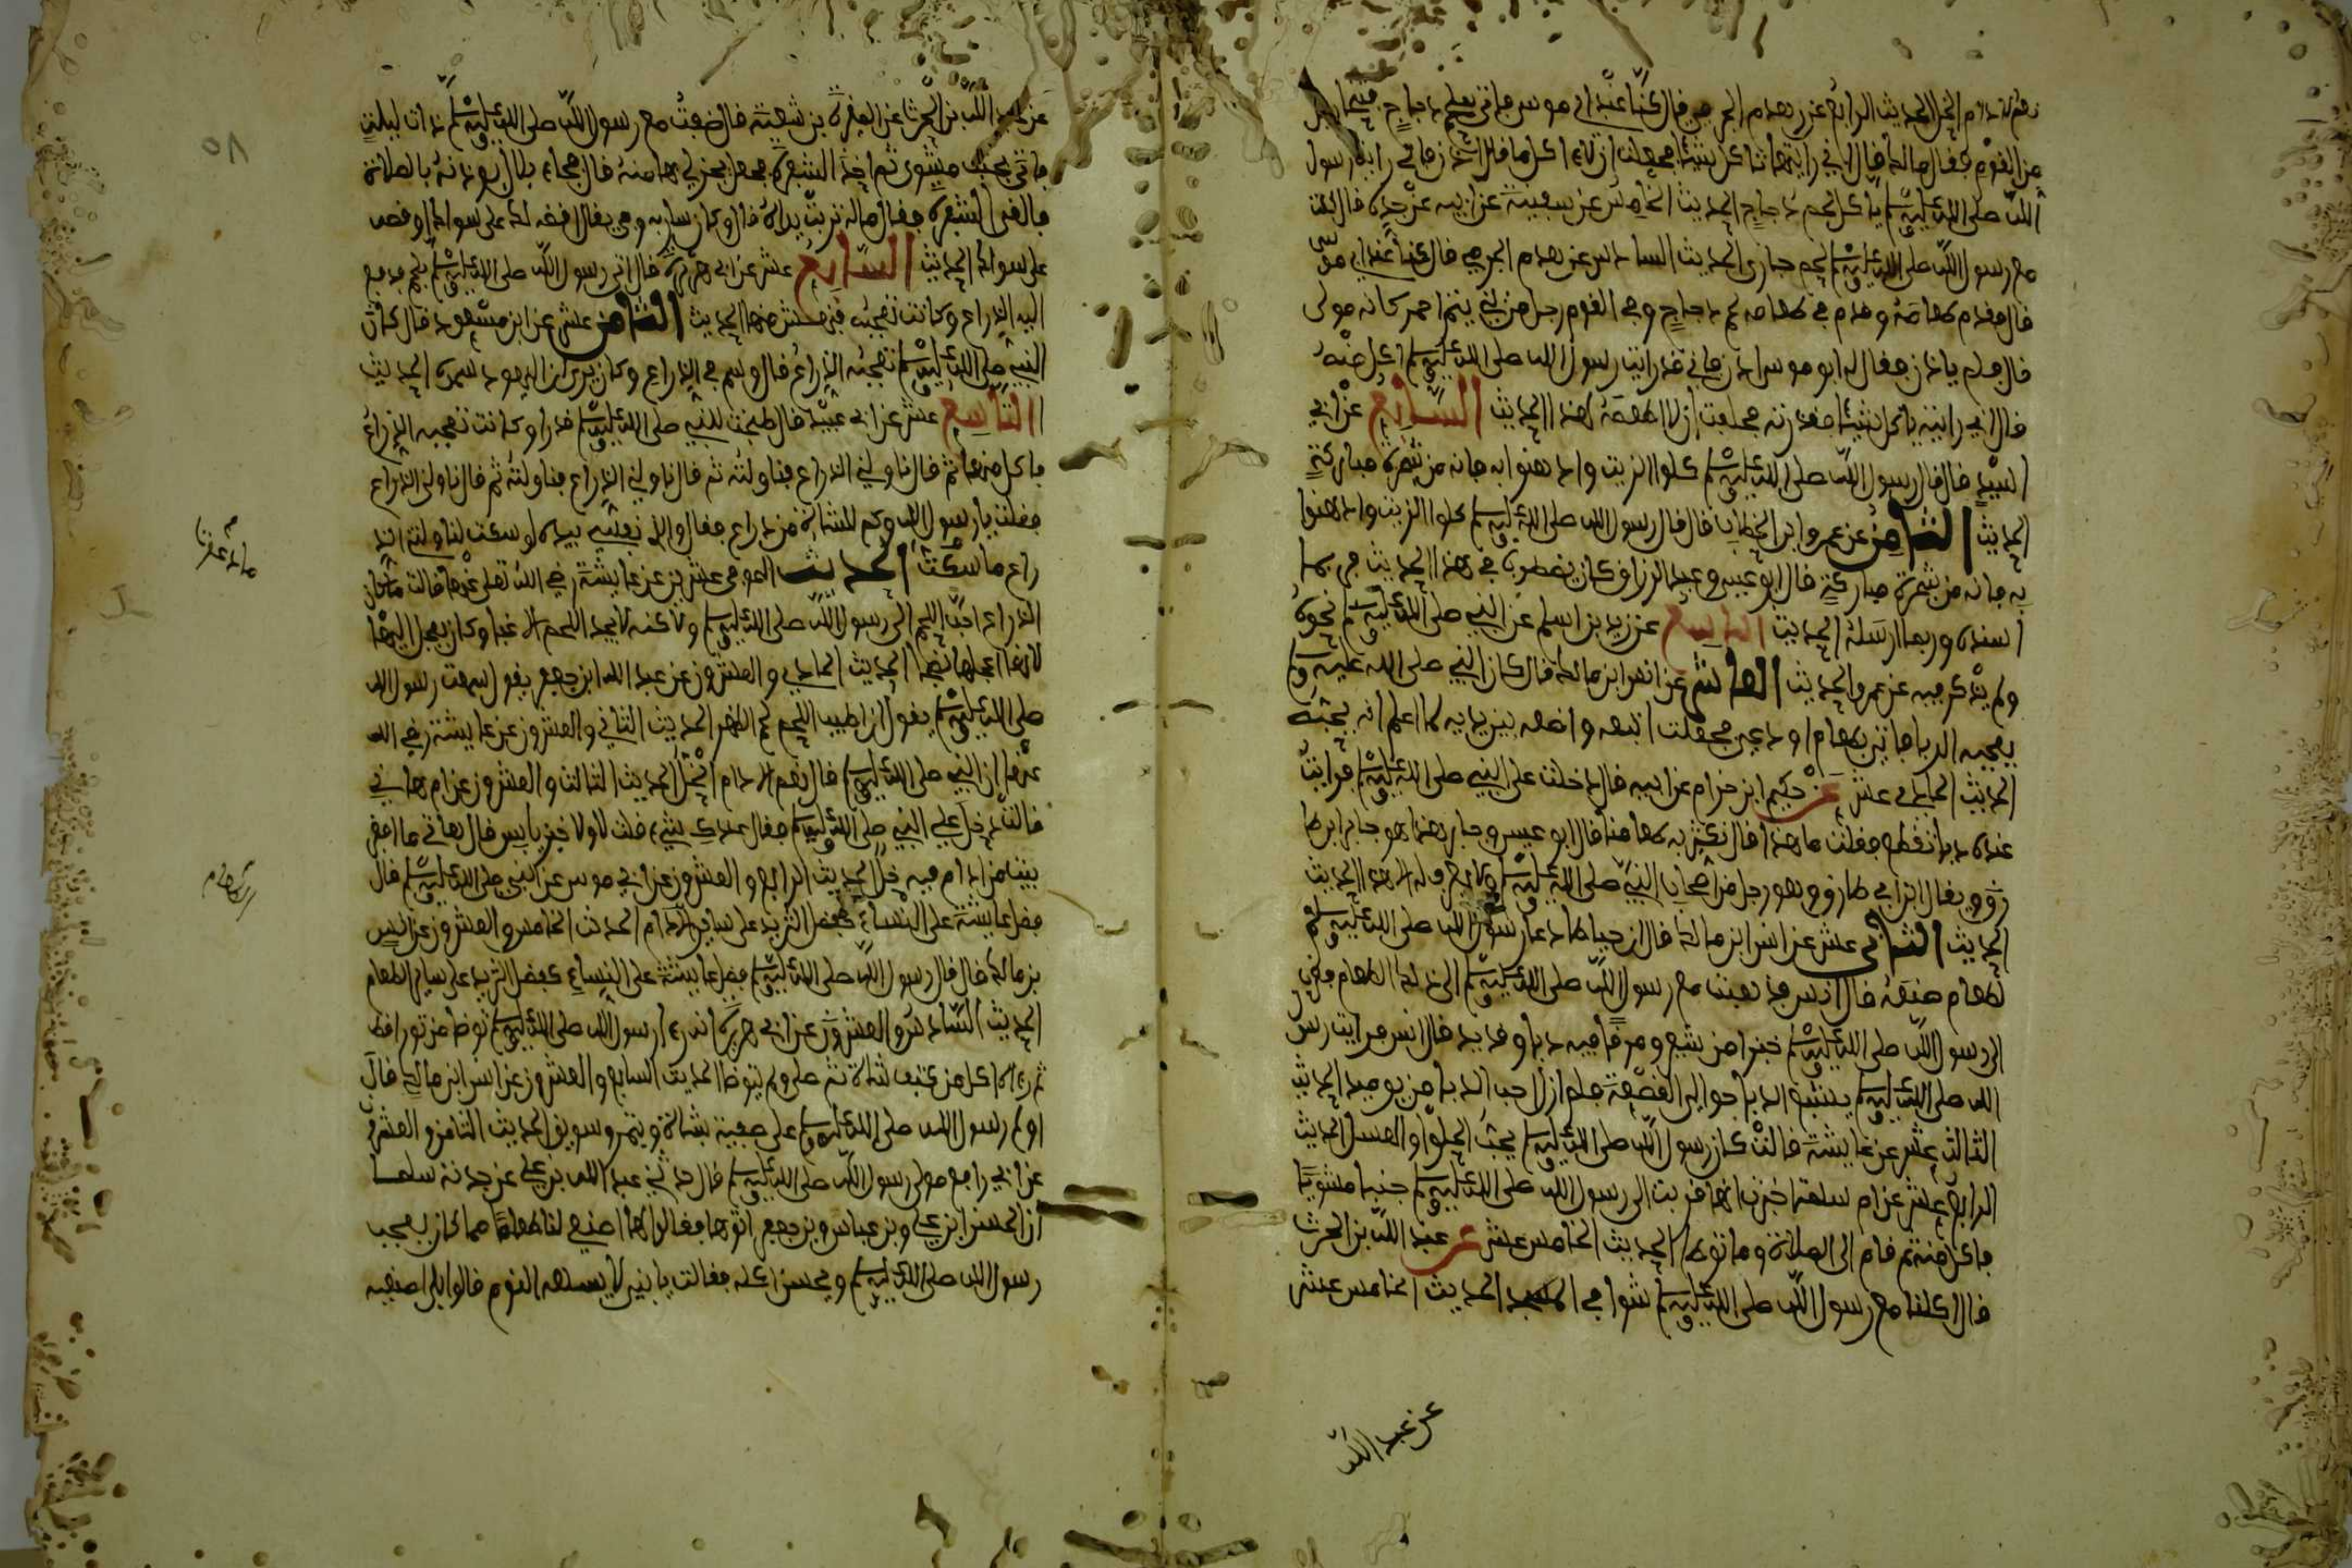 نعم الادام الخل الحديث الرابع عن زهدم الجرمي قال كنا عند ابي موسى فاتي بلحم دجاج فتنحا رجل
من القوم فقال مالك فقال اني رايتها تاكل شيئا فحلفت ان لا اكلها قال ادن فاني رايت رسول
الله صلى الله عليه وسلم ياكل لحم دجاج الحديث الخامس عن سفينة عن ابيه عن جده قال اكلت
مع رسول الله صلى الله عليه وسلم لحم حبارى الحديث السادس عن زهدم الجرمي قال كنا عند ابي موسى
قال فقدم طعامه وقدم في طعامه لحم دجاج وفي القوم رجل من بني يتم احمر كانه مولى
قال فلم يدن فقال له ابو موسى ادن فاني قد رايت رسول الله صلى الله عليه وسلم اكل منه
قال اني رايته ياكل شيئا فقذرته فحلفت ان لا اطعمه هذا الحديث السابع عن ابي
اسيد قال قال رسول الله صلى الله عليه وسلم كلوا الزيت وادهنوا به فانه من شجرة مباركة
الحديث الثامن عن عمرو ابن الخطاب قال قال رسول الله صلى الله عليه وسلم كلوا الزيت وادهنوا
به فانه من شجرة مباركة قال ابو عيسى وعبد الرزاق كان يضطرب في هذا الحديث فربما
اسنده وربما ارسله الحديث التاسع عن زيد بن اسلم عن النبي صلى الله عليه وسلم نحوه
ولم يذكر فيه عن عمرو الحديث العاشر عن انس ابن مالك قال كان النبي صلى الله عليه وسلم
يعجبه الدبا فاتي بطعام او دعي فجعلت اتبعه واضعه بين يديه لما اعلم انه يحبه
الحديث الحادي عشر عن حكيم ابن حزام عن ابيه قال دخلت على النبي صلى الله عليه وسلم فرايت
عنده دبا تقطع فقلت ما هذا قال نكثر به طعامنا قال ابو عيسى وجابر هذا هو جابر ابن طا
رق ويقال ابن ابي طارق وهو رجل من اصحاب النبي صلى الله عليه وسلم ولا يعرف له الا هذا الحديث
الحديث الثاني عشر عن انس ابن مالك قال ان خياطا دعا رسول الله صلى الله عليه وسلم
لطعام صنعه قال انس فذهبت مع رسول الله صلى الله عليه وسلم الى ذلك الطعام فقرب
الى رسول الله صلى الله عليه وسلم خبزا من شعير ومرقا فيه دبا وقديد قال انس فرايت رسول
الله صلى الله عليه وسلم يتتبع الدبا حوالي القصعة فلم ازل احب الدبا من يوميذ الحديث
الثالث عشر عن عايشة قالت كان رسول الله صلى الله عليه وسلم يحب الحلوا والعسل الحديث
الرابع عشر عن ام سلمة اخبرت انها قربت الى رسول الله صلى الله عليه وسلم جنبا مشويا
فاكل منه ثم قام الى الصلاة وما توضا الحديث الخامس عشر عن عبد الله بن الحرث
قال اكلنا مع رسول الله صلى الله عليه وسلم شوا في المسجد الحديث الخامس عشر
عن عبد الله
عن عبد الله بن الحرث عن المغيرة بن شعبة قال ضفت مع رسول الله صلى الله عليه وسلم ذات ليلة
فاتي بجنب مشوي ثم اخذ الشفرة فجعل يحز لي بها منه قال فجاء بلال يوذنه بالصلاة
فالقى الشفرة فقال ماله تربت يداه قال وكان شاربه وفي يقال اقصه لك على سواك او قصه
على سواك الحديث السابع عشر عن ابي هريرة قال اتي رسول الله صلى الله عليه وسلم بلحم فرفع
اليه الذراع وكانت تعجبه فنهش منها الحديث الثامن عشر عن ابن مسعود قال كان
النبي صلى الله عليه وسلم تعجبه الذراع قال وسم في الذراع وكان يرى ان اليهود سموه الحديث
التاسع عشر عن ابي عبيد قال طبخت للنبي صلى الله عليه وسلم قدرا وكانت تعجبه الذراع
فاكل منها ثم قال ناولني الذراع فناولته ثم قال ناولني الذراع فناولته ثم قال ناولني الذراع
فقلت يا رسول الله وكم للشاة من ذراع فقال والذي نفسي بيده لو سكت لناولتني الذ
راع ما سكت الحديث الموفي عشرين عن عايشة رضي الله تعلى عنها قالت ما كان
الذراع احب اللحم الى رسول الله صلى الله عليه وسلم ولاكنه لا يجد اللحم الا غبا وكان يعجل اليها
لانها اعجلها نضجا الحديث الحادي والعشرون عن عبد الله ابن جعفر يقول سمعت رسول الله
صلى الله عليه وسلم يقول ان اطيب اللحم لحم الظهر الحديث الثاني والعشرون عن عايشة رضي الله
عنها ان النبي صلى الله عليه وسلم قال نعم الادام الخل الحديث الثالث والعشرون عن ام هاني
قالت دخل علي النبي صلى الله عليه وسلم فقال عندك شيء قلت لا ولا خبز يابس قال هاتي ما اقفر
بيت من ادام فيه خل الحديث الرابع والعشرون عن ابي موسى عن النبي صلى الله عليه وسلم قال
فضل عايشة على النساء كفضل الثريد على ساير الادام الحديث الخامس والعشرون عن انس
بن مالك قال قال رسول الله صلى الله عليه وسلم فضل عايشة على النساء كفضل الثريد على ساير الطعام
الحديث السادس والعشرون عن ابي هريرة انه رءا رسول الله صلى الله عليه وسلم توضا من ثور اقط
ثم رءاه اكل من كتف شاة ثم صلى ولم يتوضا الحديث السابع والعشرون عن انس ابن مالك قال
اولم رسول الله صلى الله عليه وسلم على صفية بشاة وبتمر وسويق الحديث الثامن والعشرون
عن ابي رافع مولى رسول الله صلى الله عليه وسلم قال حدثني عبد الله بن علي عن جدته سلمى
ان الحسن ابن علي وبن عباس وبن جعفر اتوها فقالوا لها اصنعي لنا طعاما مما كان يعجب
رسول الله صلى الله عليه وسلم ويحسن اكله فقالت يا بني لا يسلمه اليوم قالوا بلى اصنعيه
٥٨